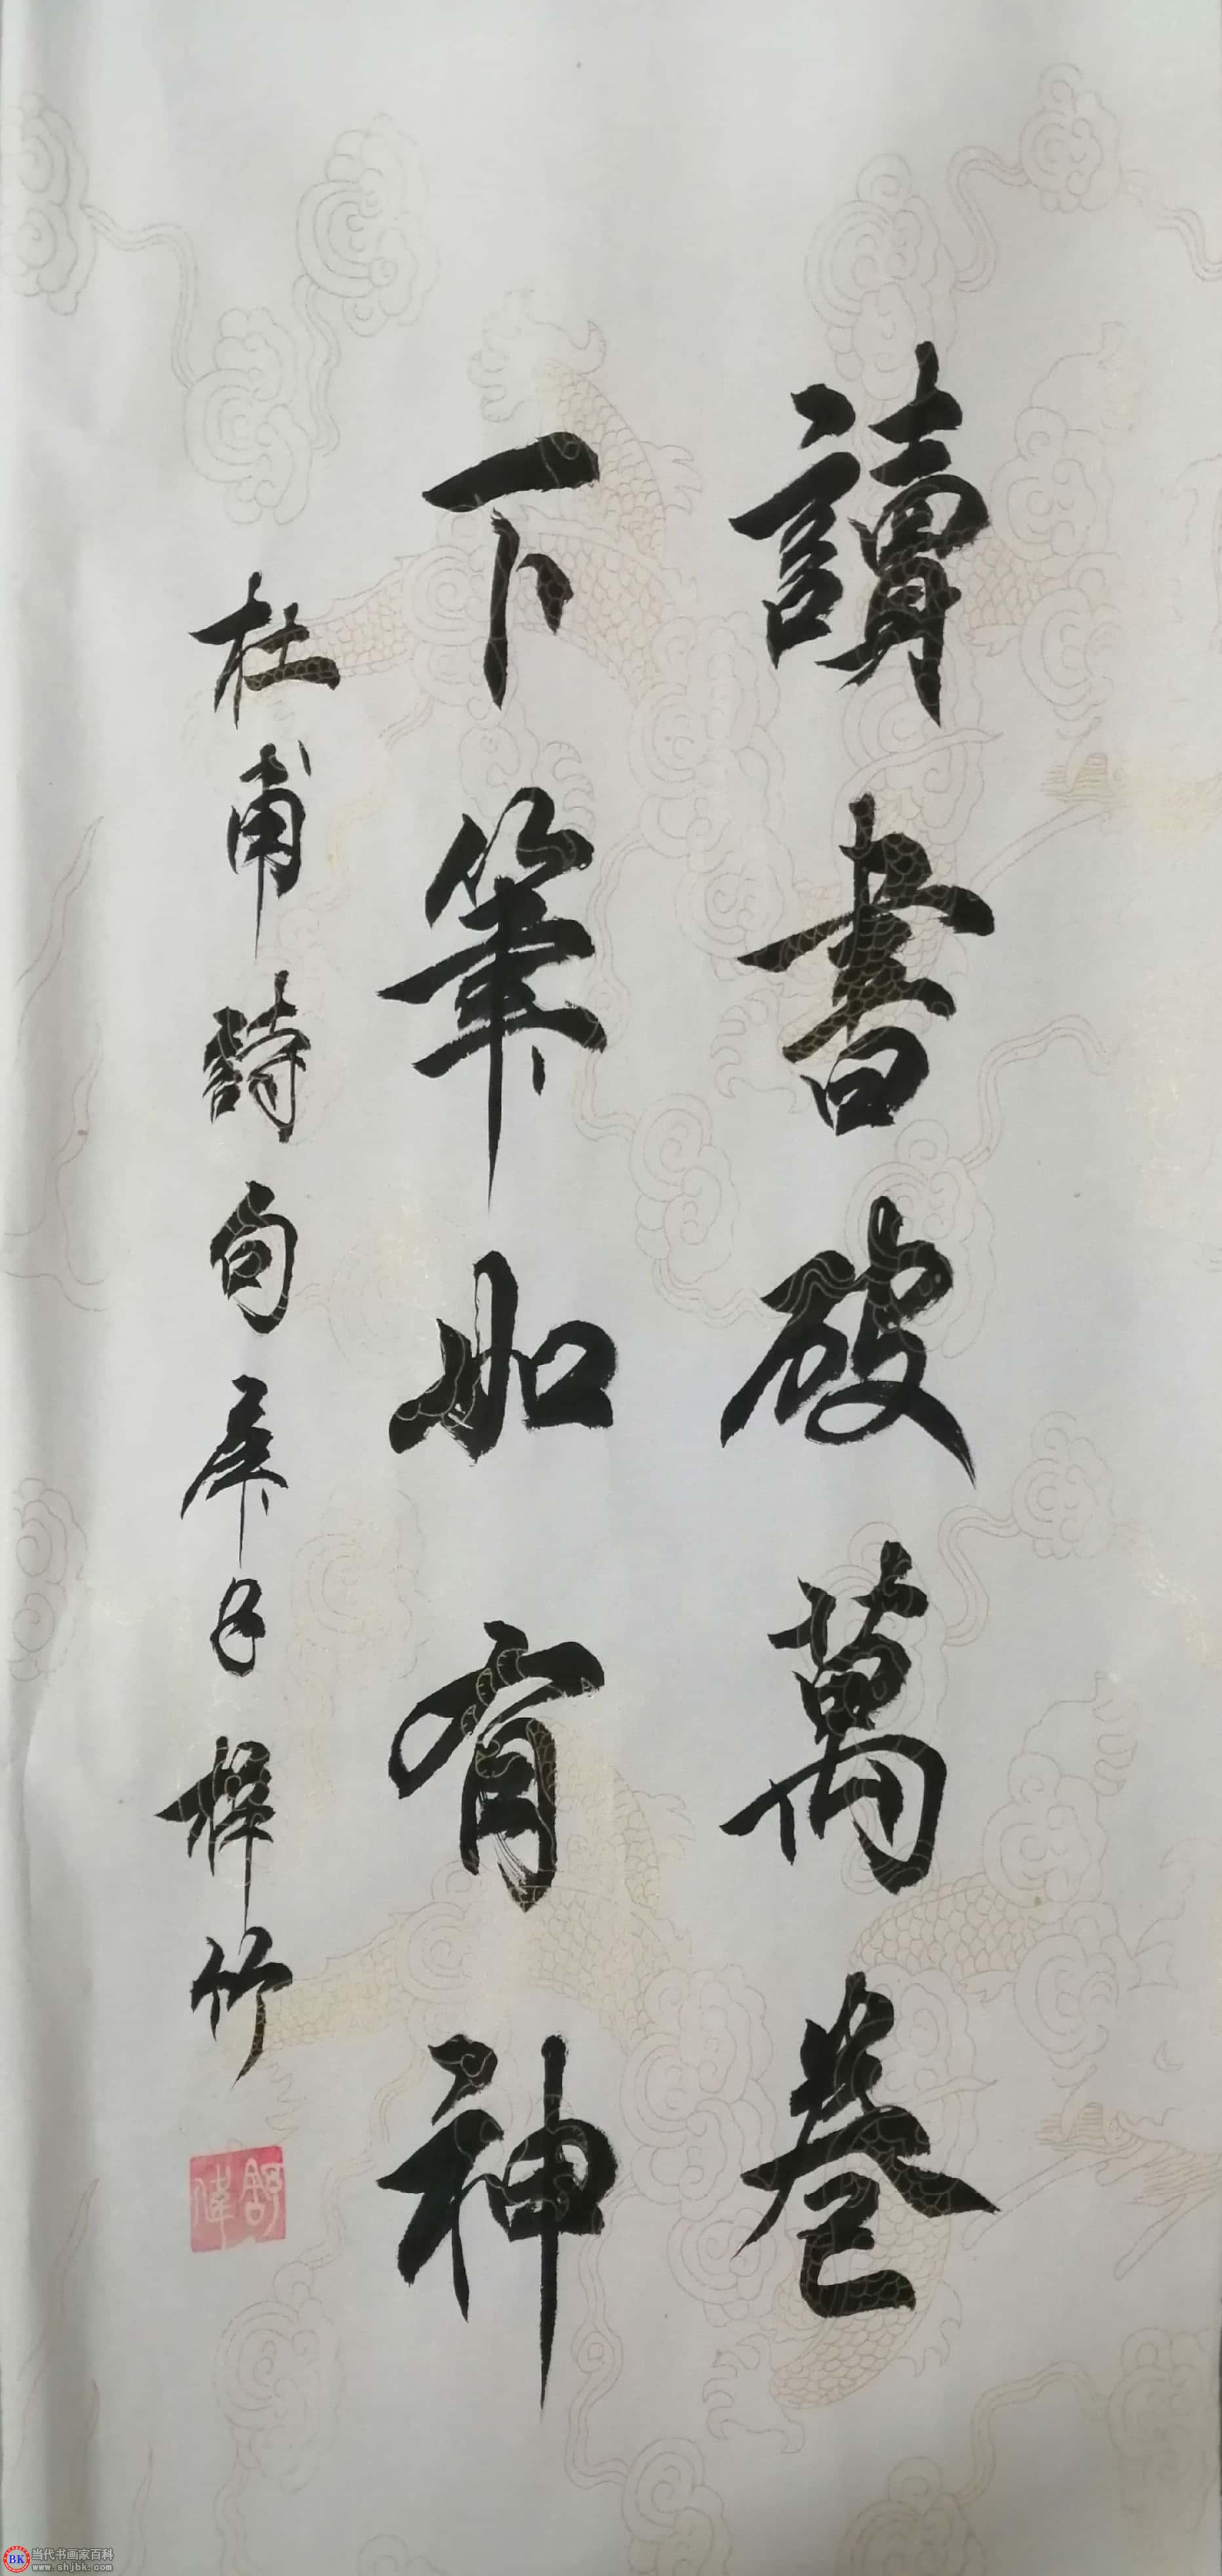 讀書破萬卷
下筆如有神
杜甫詩句庚子梓竹
舒偉
BK 当代书画家百科
www.shjbk.com